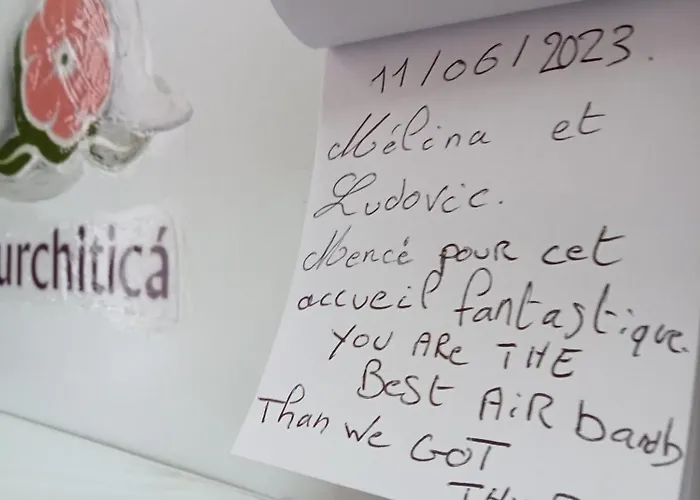 urchiticá
11/06/2023.
Mélina et
Ludovic.
Mencé pour cet
accueil fantastique.
YOU ARE THE
BEST AIR
Than We GOT